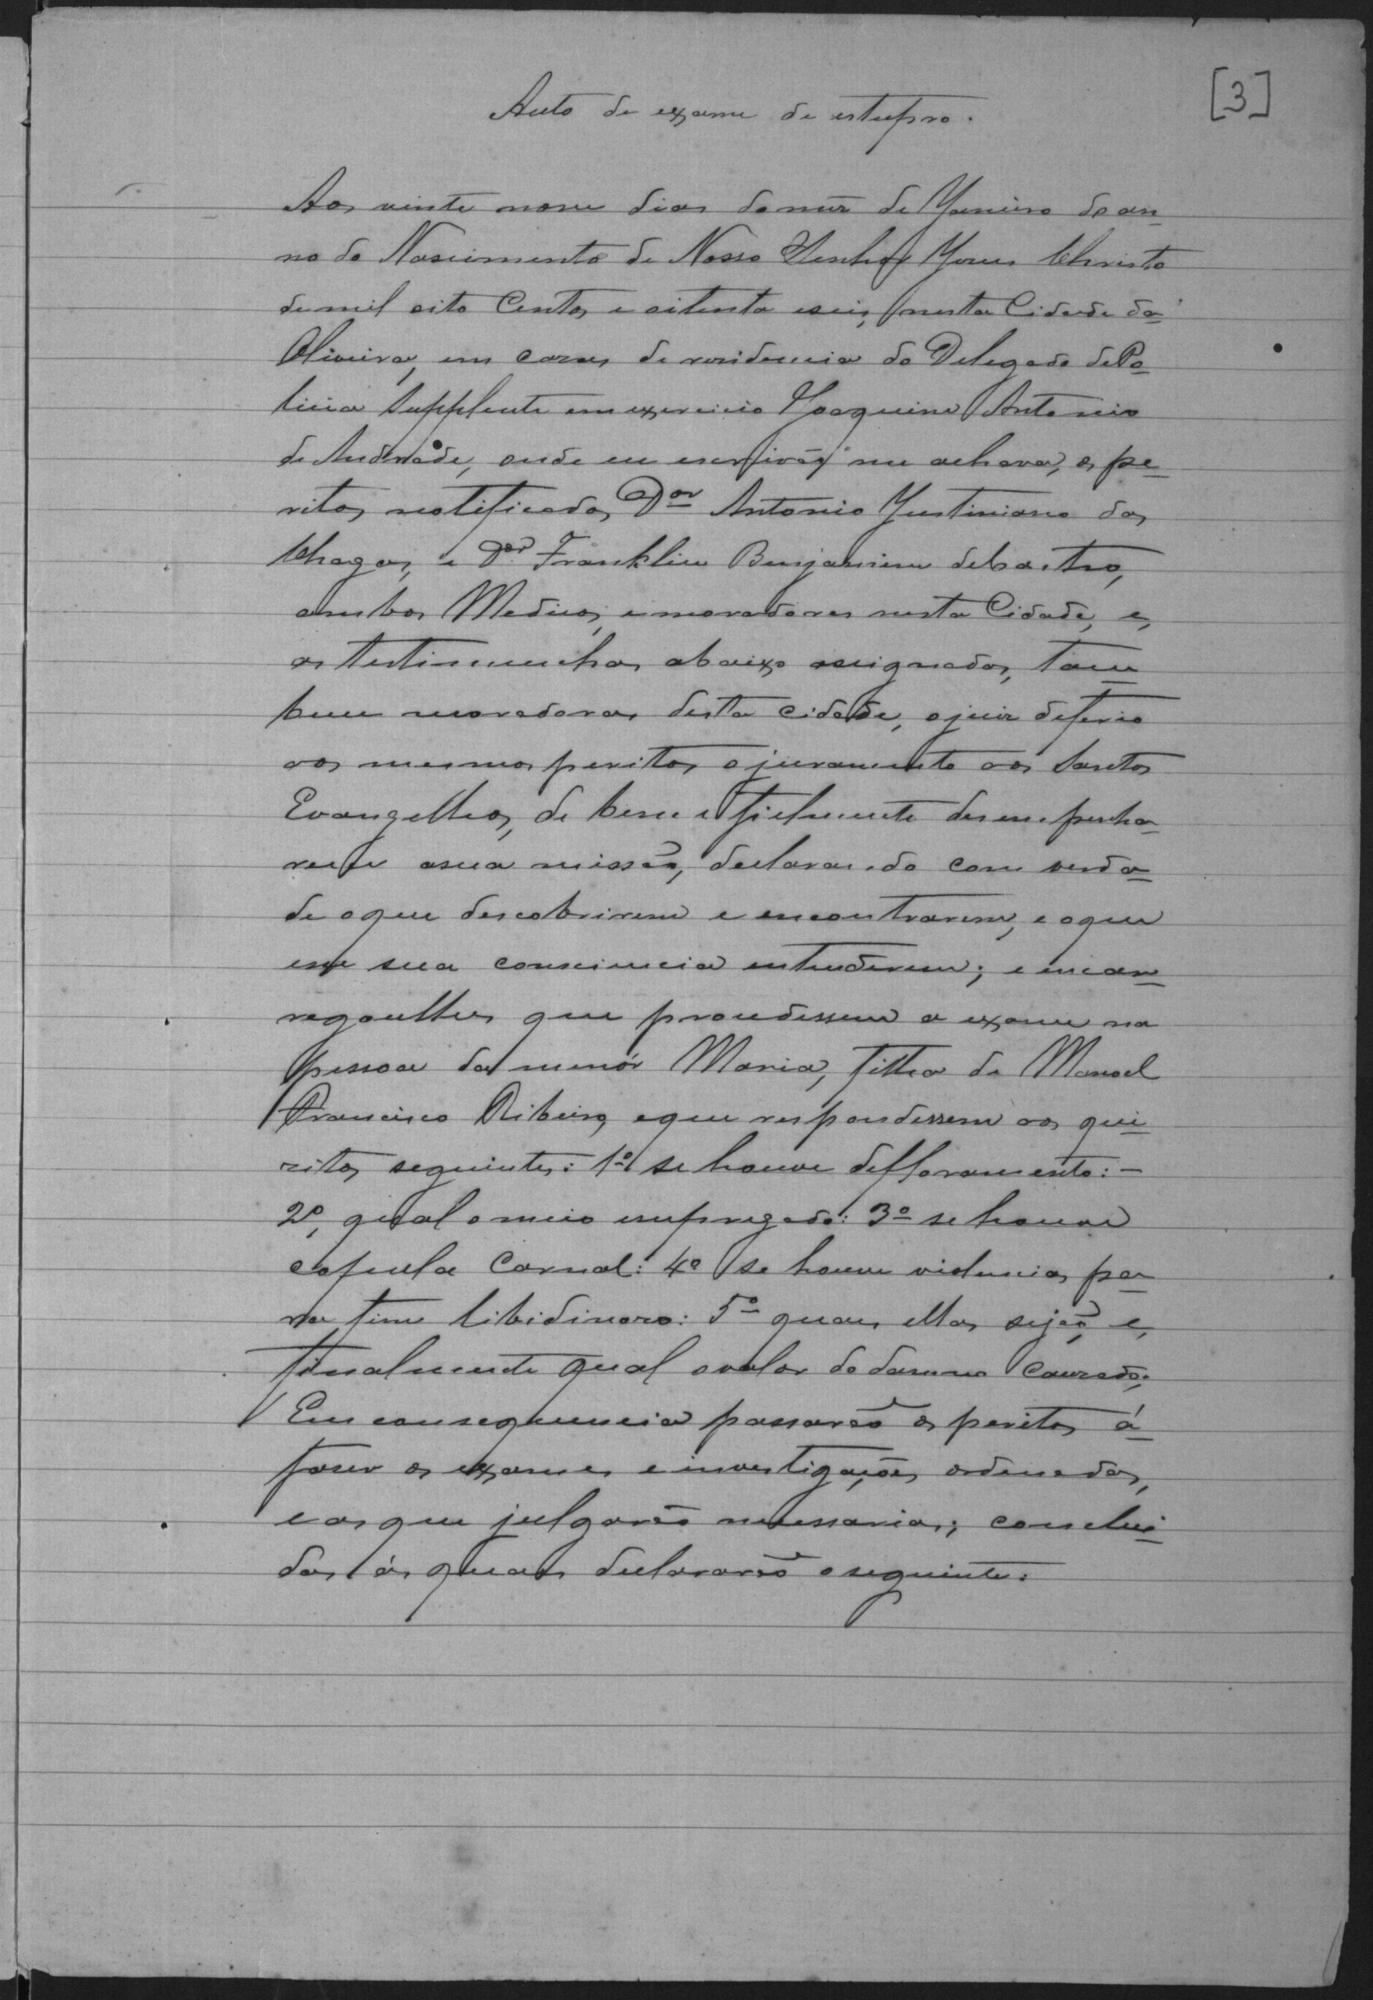 [3]
Auto de exame de estupro.
Aos vinte nove dias do mez de Janeiro do an
no do Nascimento de Nosso Senhor Jesus Christo
de mil oito Centos e oitenta e seis, nesta Cidade da
Oliveira, em casas de residencia do Delegado de Po
licia Supplente em exercicio Joaquim Antonio
de Andrade, onde eu escrivão me achava, os pe
ritos notificados Dor Antonio Justiniano das
Chagas, e Dor Franklin Benjamim de Castro,
ambos Medicos, e moradores nesta Cidade, e,
as testimunhas abaixo assignados, tam
bem moradoras desta cidade, o juiz deferio
aos mesmos peritos o juramento aos Santos
Evangelhos, de bem e fielmente desempenha
rem a sua missão, declarando com verda
de o que descobrirem e encontrarem, e o que
em sua consciencia entenderem; e encar
regoulhes que procedessem a exame na
pessoa da menór Maria, filha de Manoel
Francisco Ribeiro, e que respondessem aos que
zitos seguintes: 1º se houve defloramento: -
2º, qual o meio empregado: 3º se houve
copula Carnal: 4º se houve violencias pa
ra fim libidinoso: 5º quaes ellas sejão, e,
finalmente qual o valor do damno Causado;
Em consequencia passarão os peritos á
faser os exames e investigações ordenadas,
e as que julgarão necessarias; conclui
das ás quaes declararão o seguinte: